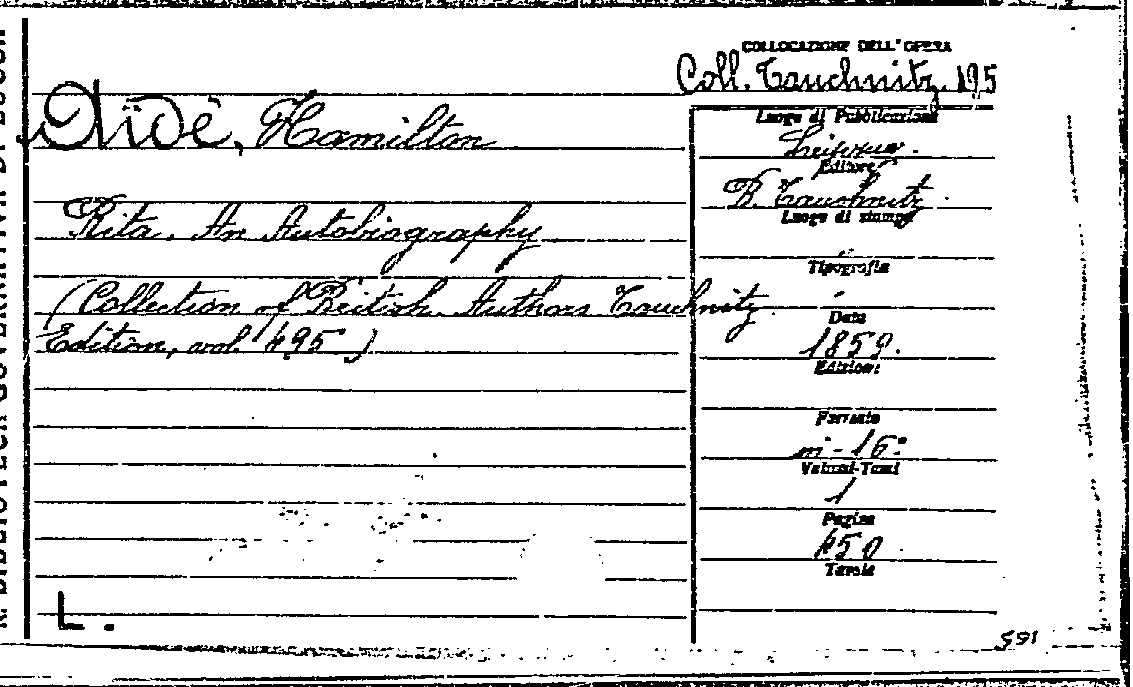 COLLOCAZIONE DELL'OPERA
Coll. Tauchnitz. 195
Aïdé, Hamilton
Rita. An Autobiography
(Collection of British Authors Tauchnitz
Edition, vol. 495)
L.
Luogo di Pubblicazione
Editore
B. Tauchnitz
Luogo di stampa
Tipografia
Data
1859.
Edizione:
Formato
in-16°
Volumi-Tomi
1
Pagine
450
Tavole
591